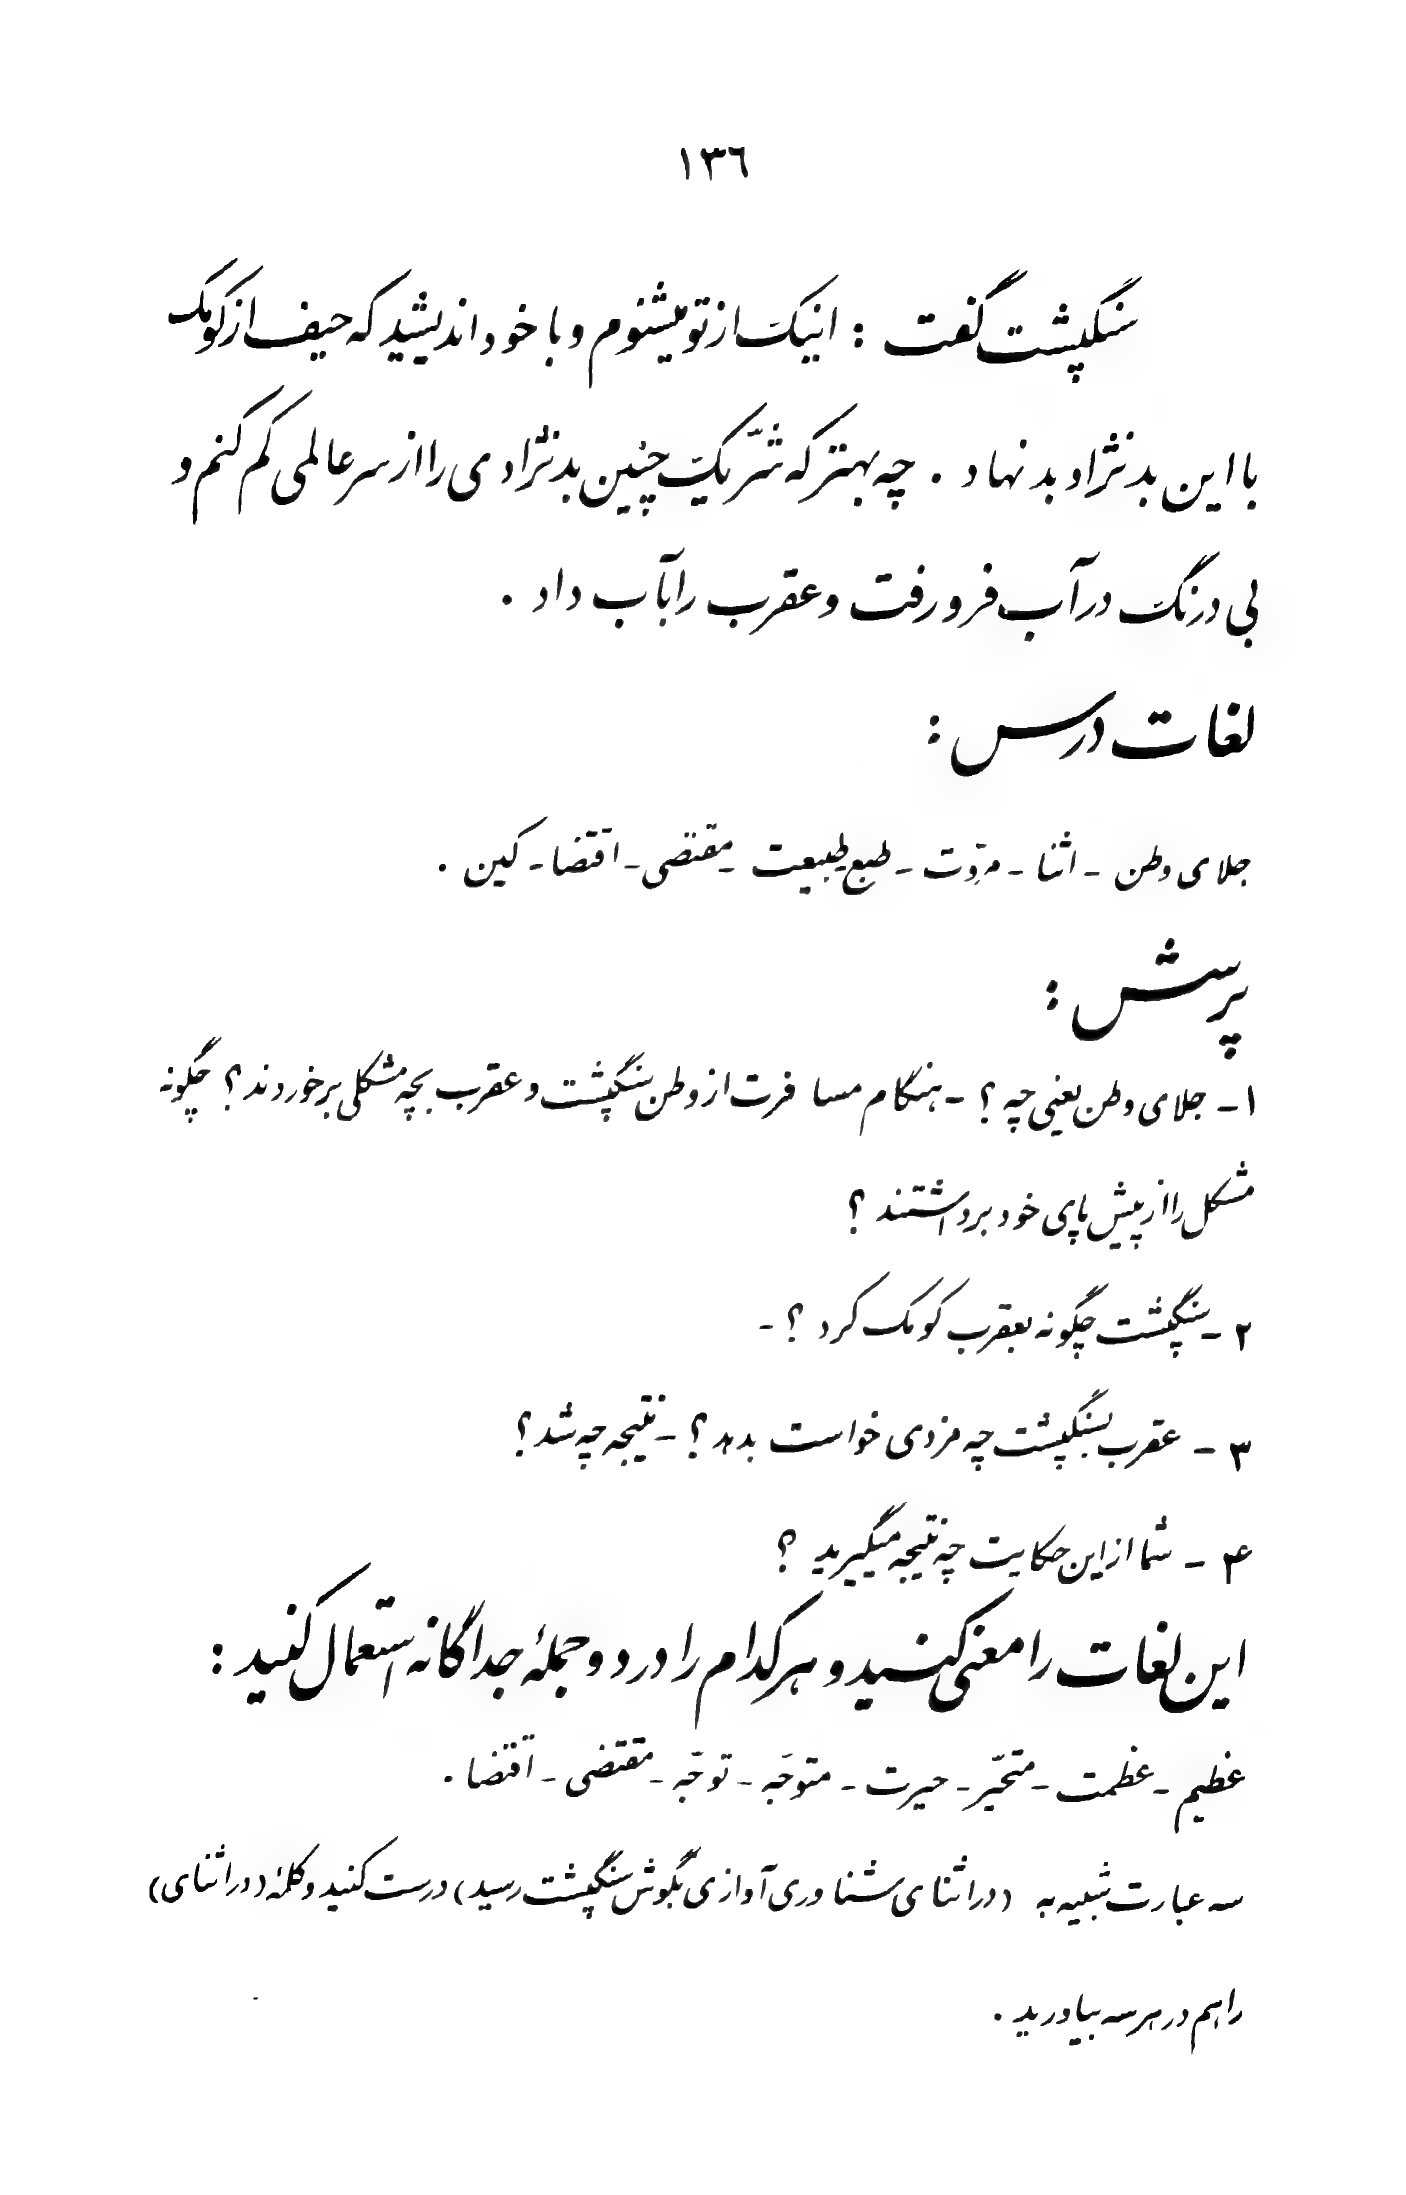 ١٣٦
سنگپشت گفت : اینک از تو میشنوم و با خود اندیشید که حیف از کومک
با این بدنژاد بدنهاد . چه بهتر که شرّ یک چنین بدنژادی را از سر عالمی کم کنم و
بی درنگ در آب فرو رفت و عقرب را بآب داد .
لغات درس :
جلای وطن - اثنا - مروّت - طبع طبیعت - مقتضی - اقتضا - کین .
پرسش :
١- جلای وطن یعنی چه ؟ - هنگام مسافرت از وطن سنگپشت و عقرب بچه مشکلی برخوردند ؟ چگونه
مشکل را از پیش پای خود برداشتند ؟
٢- سنگپشت چگونه بعقرب کومک کرد ؟ -
٣ - عقرب بسنگپشت چه مزدی خواست بدهد ؟ - نتیجه چه شد ؟
۴ - شما از این حکایت چه نتیجه میگیرید ؟
این لغات را معنی کنید و هر کدام را در دو جملهٔ جداگانه استعمال کنید :
عظیم - عظمت - متحیّر - حیرت - متوجّه - توجّه - مقتضی - اقتضا .
سه عبارت شبیه به (در اثنای شناوری آوازی بگوش سنگپشت رسید) درست کنید و کلمهٔ (در اثنای)
را هم در هر سه بیاورید .